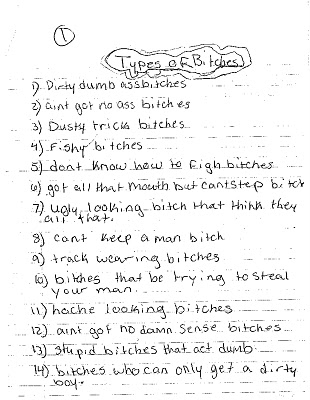 1
Types of Bitches
1) Dirty dumb assbitches
2) aint got no ass bitches
3) Dusty trick bitches
4) Fishy bitches
5) dont know how to figh bitches
6) got all that mouth but cantstep bitch
7) ugly looking bitch that think they
all that.
8) cant keep a man bitch
9) track wearing bitches
10) bitches that be trying to steal
your man.
11) hache looking bitches
12) aint got no damn sense bitches
13) stupid bitches that act dumb.
14) bitches who can only get a dirty
boy.